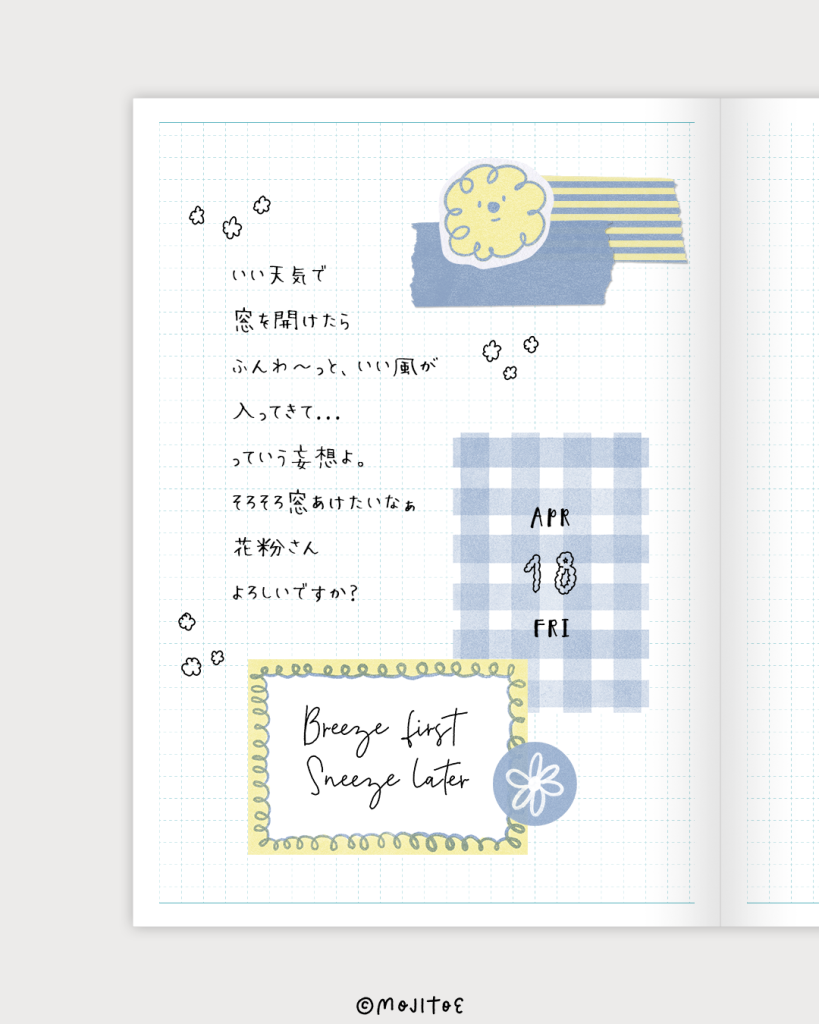 いい天気で
窓を開けたら
ふんわ〜っと、いい風が
入ってきて...
っていう妄想よ。
そろそろ窓あけたいなぁ
花粉さん
よろしいですか?
APR
18
FRI
Breeze first
Sneeze later
©MOJITOE